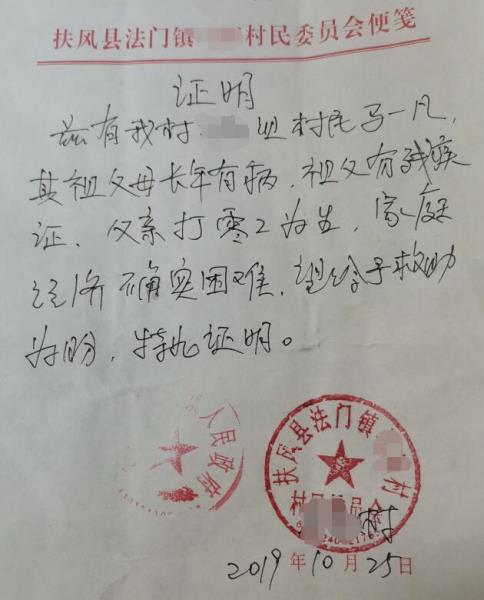 扶风县法门镇 村民委员会便笺
证明
兹有我村 组村民子一凡,
其祖父母长年有病,祖父有残疾
证、父亲打零工为生,家庭
经济确实困难,望给予救助
为盼,特此证明。
人民政府
扶风县法门镇 村
村民 员会
村
2019年10月25日